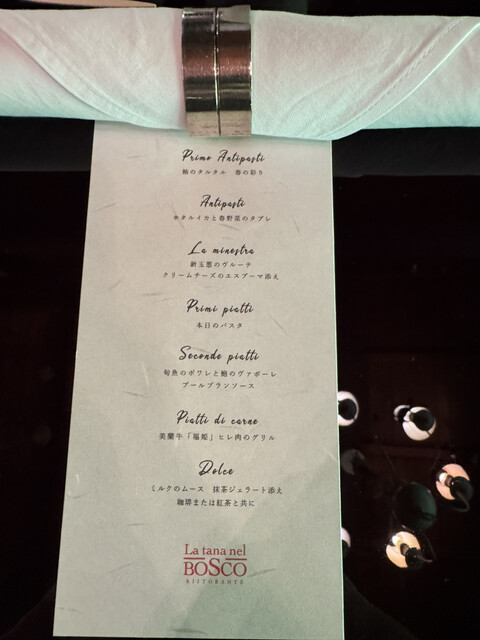 Primo Antipasti
鮪のタルタル 春の彩り
Antipasti
ホタルイカと春野菜のタブレ
La minestra
新玉葱のヴルーテ
クリームチーズのエスプーマ添え
Primi piatti
本日のパスタ
Seconde piatti
旬魚のポワレと鮑のヴァポーレ
ブールブランソース
Piatti di carne
美蘭牛「福姫」ヒレ肉のグリル
Dolce
ミルクのムース 抹茶ジェラート添え
珈琲または紅茶と共に
La tana nel
BOSCO
RISTORANTE